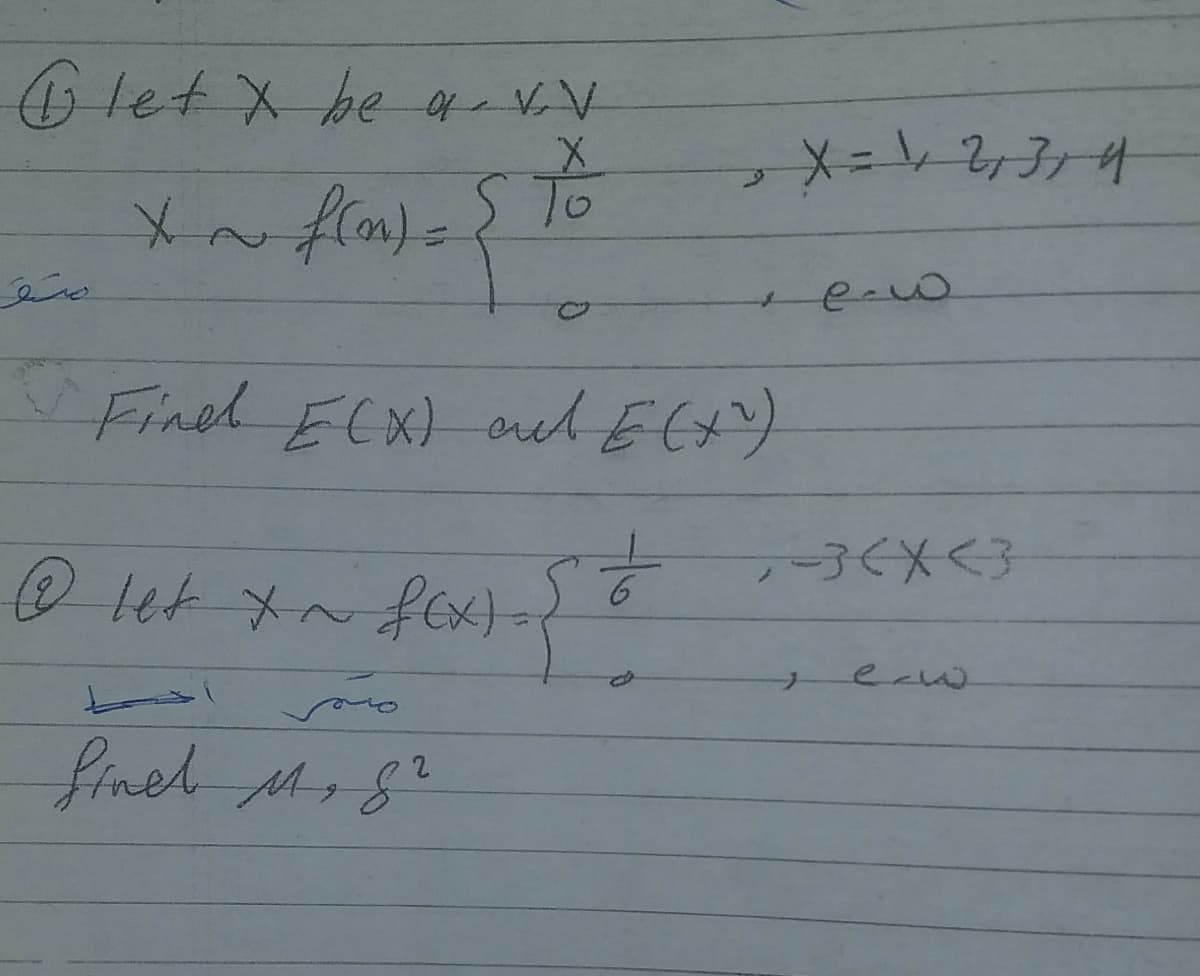 ① let X be a r.v
X ~ f(x) = { x/10 , X = 1, 2, 3, 4
0 , e.w
Find E(X) and E(x²)
② let X ~ f(x) = { 1/6 , -3 < X < 3
0 , e.w
find μ, δ²